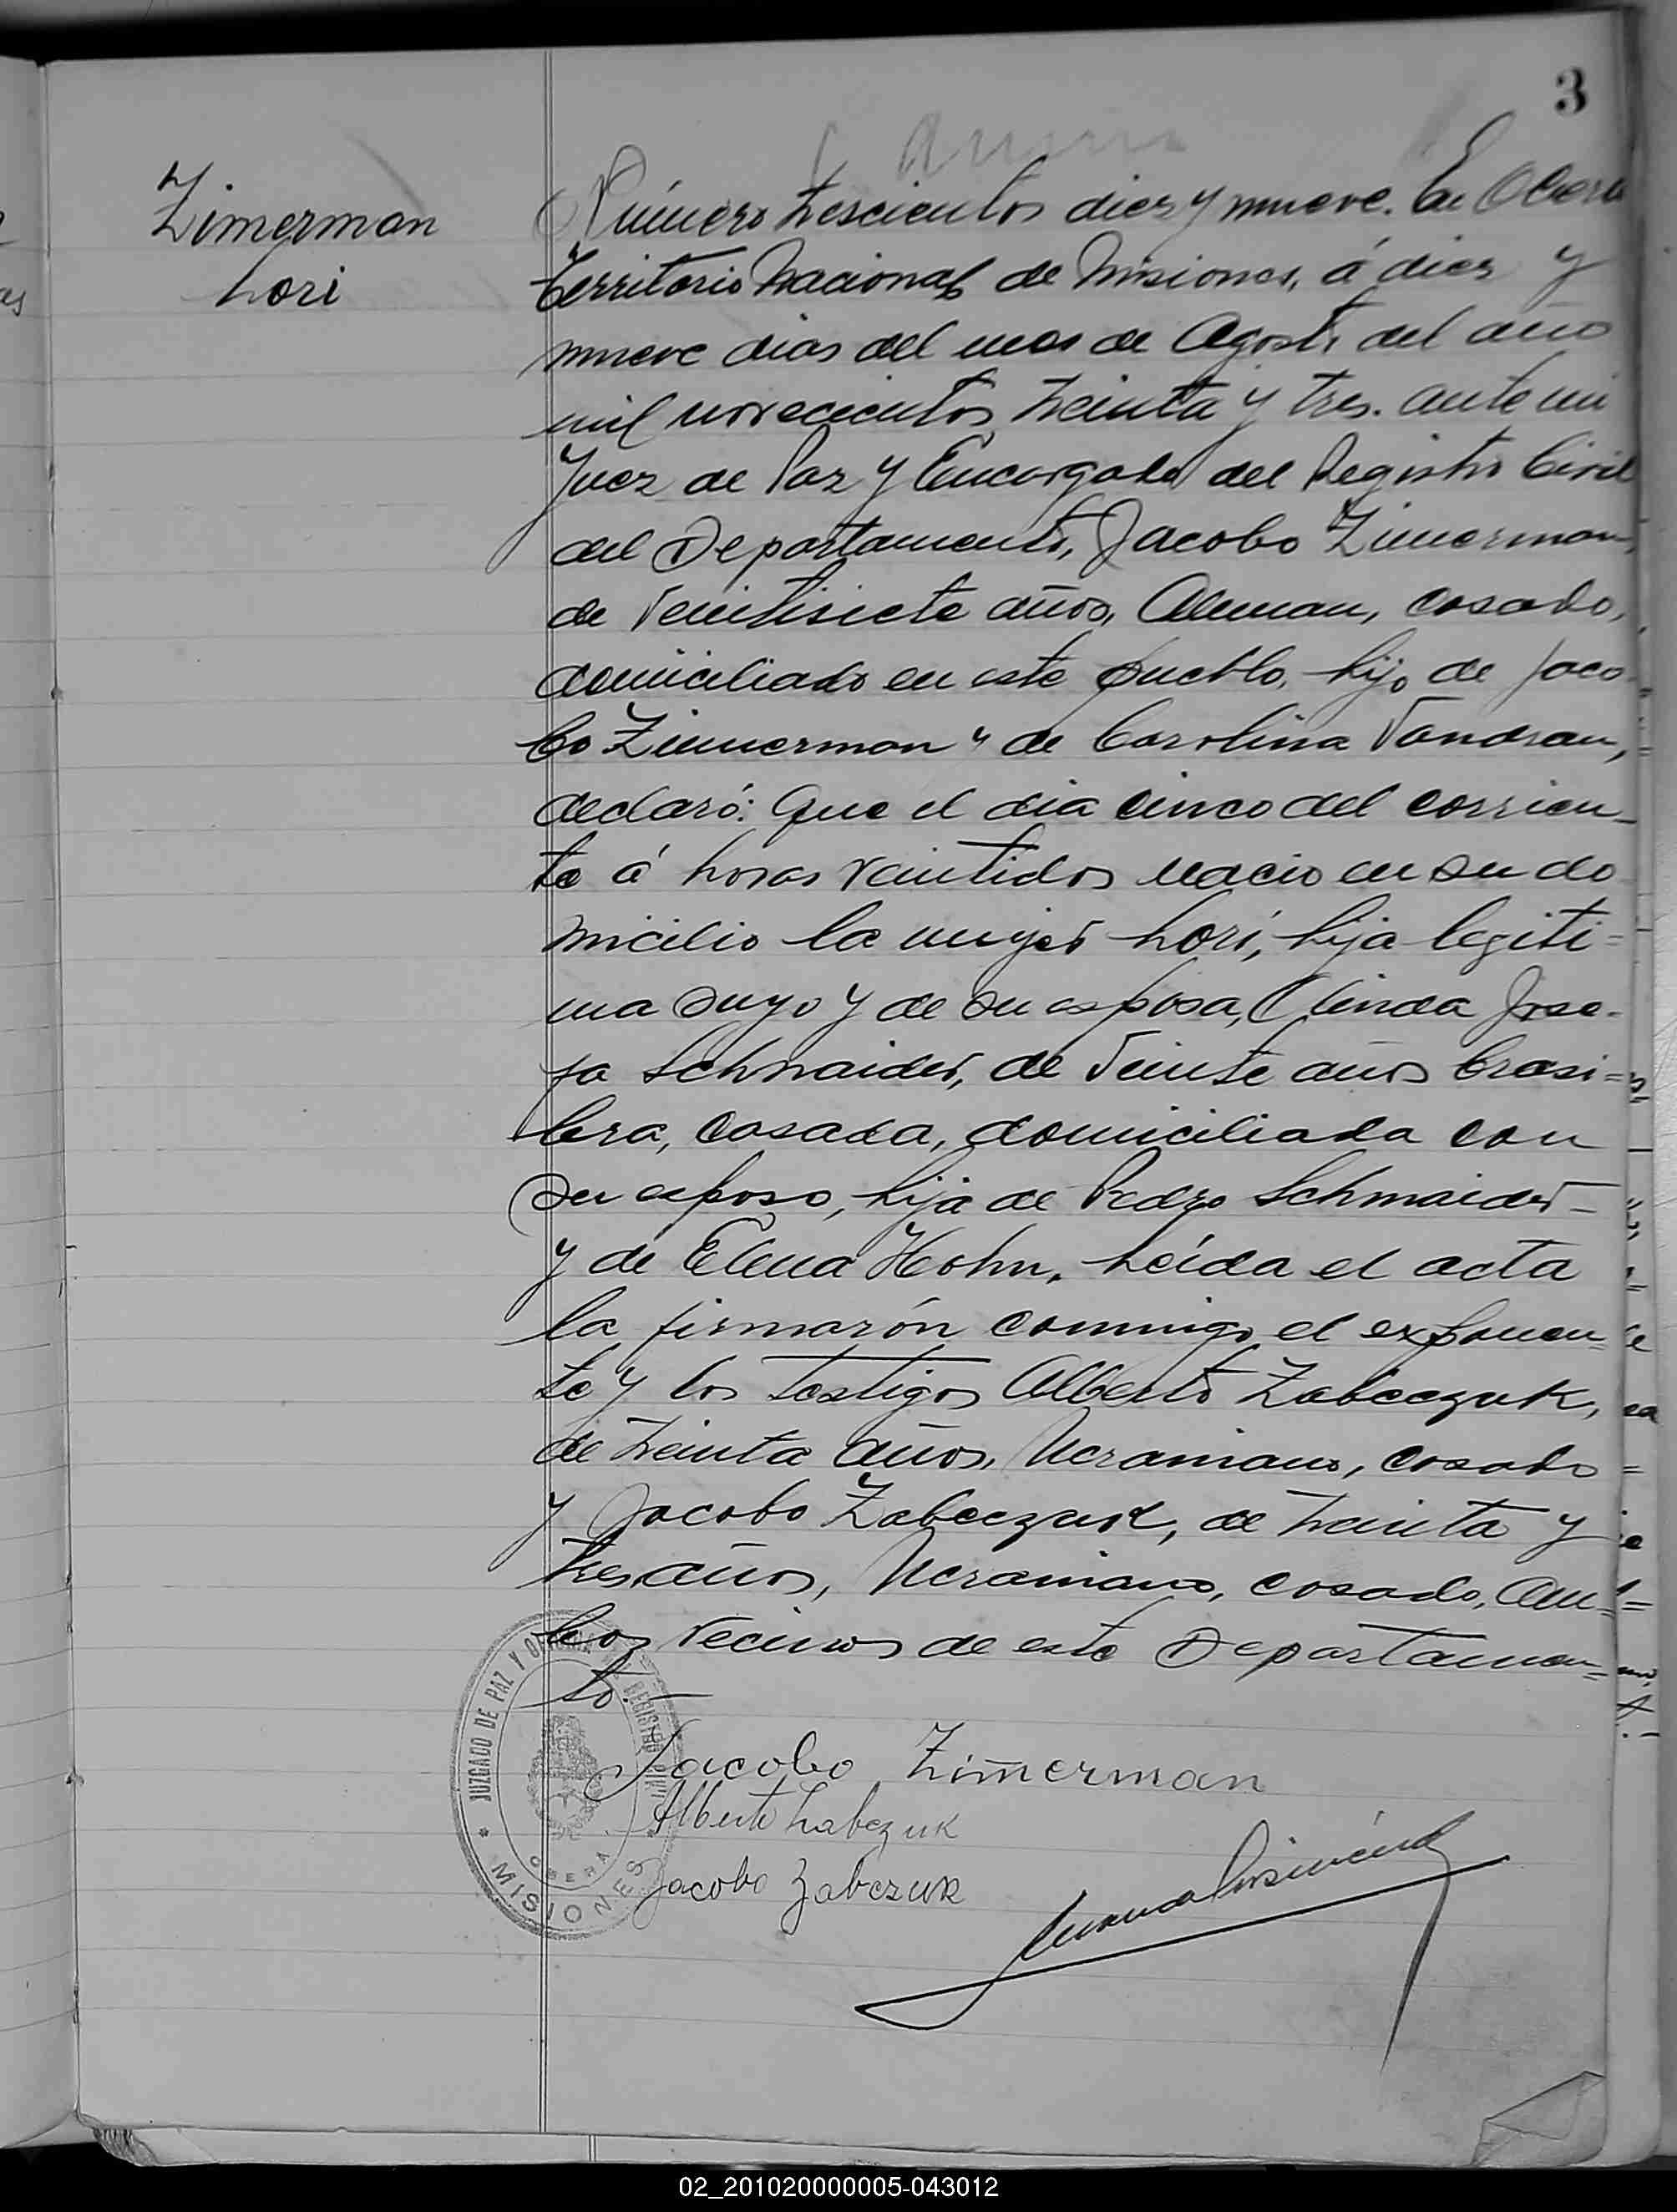 3
Zimerman
Lori
Número trescientos diez y nueve. En Oberá
Territorio Nacional de Misiones, á diez y
nueve dias del mes de Agosto del año
mil novecientos treinta y tres. ante mi
Juez de Paz y Encargado del Registro Civil
del Departamento, Jacobo Zimerman,
de veintisiete años, Aleman, casado,
domiciliado en este pueblo, hijo de Jaco
bo Zimmerman y de Carolina Vandran,
declaró: Que el dia cinco del corrien-
te á horas veintidos nacio en su do
micilio la mujer Lori, hija legiti=
ma suya y de su esposa, Olinda Jose-
fa Schnaider, de veinte años brasi=
lera, casada, domiciliada con
su esposo, hija de Pedro Schnaider-
y de Elena Hohn. Leída el acta
la firmarón conmigo el exponen=
te y los testigos Alberto Zabeczuk,
de treinta años, Ucraniano, casado
y Jacobo Zabeczuk, de treinta y
tres años, Ucraniano, casado, am=
bos vecinos de este Departamen=
to.-
Jacobo Zimerman
Alberto Zabczuk
Jacobo Zabczuk
JUZGADO DE PAZ Y REGISTRO
OBERA
* MISIONES
02_201020000005-043012